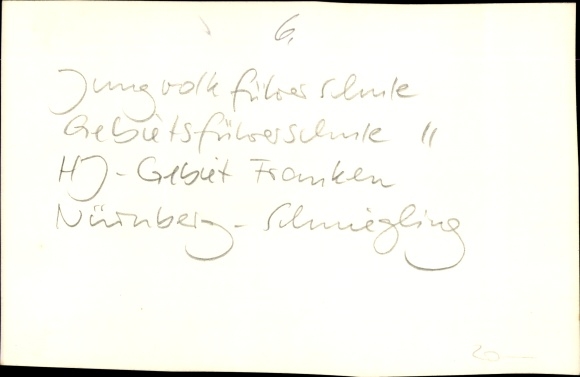 6.
Jungvolkführerschule
Gebietsführerschule II
HJ-Gebiet Franken
Nürnberg-Schniegling
20—